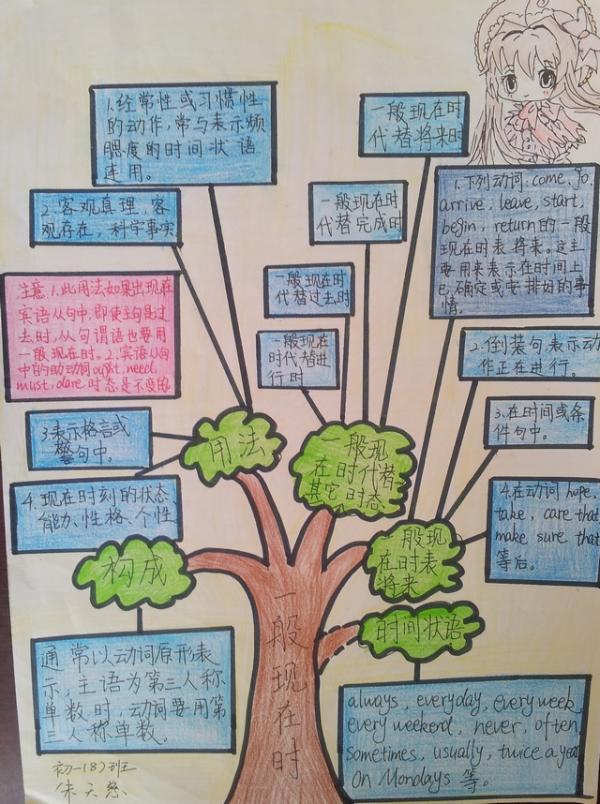 1.经常性或习惯性
的动作,常与表示频
腮度的时间状语
连用。
2.客观真理,客
观存在,科学事实
注意:1.此用法如果出现在
宾语从句中,即使主句是过
去时,从句谓语也要用
一般现在时。2.宾语从句
中的助动词ought,need,
must,dare时态是不变的
3.表示格言或
警句中。
4.现在时刻的状态
能力、性格、个性
用法
一般现在时
代替将来时
一般现在时
代替完成时
一般现在时
代替过去时
一般现在
时代替进
行时
一般现
在时代替
其它时态
1.下列动词:come,go,
arrive,leave,start,
begin,return的一般
现在时表将来。这主
要用来表示在时间上
已确定或安排好的事
情。
2.倒装句,表示动
作正在进行。
3.在时间或条
件句中。
4.在动词hope,
take,care that
make sure that
等后。
一般现
在时表
将来
构成
通常以动词原形表
示,主语为第三人称
单数时,动词要用第
三人称单数.
时间状语
always,everyday,every week
every weekend,never,often,
sometimes,usually,twice a year
On Mondays等。
一般现在时
初一(8)班
朱天慈